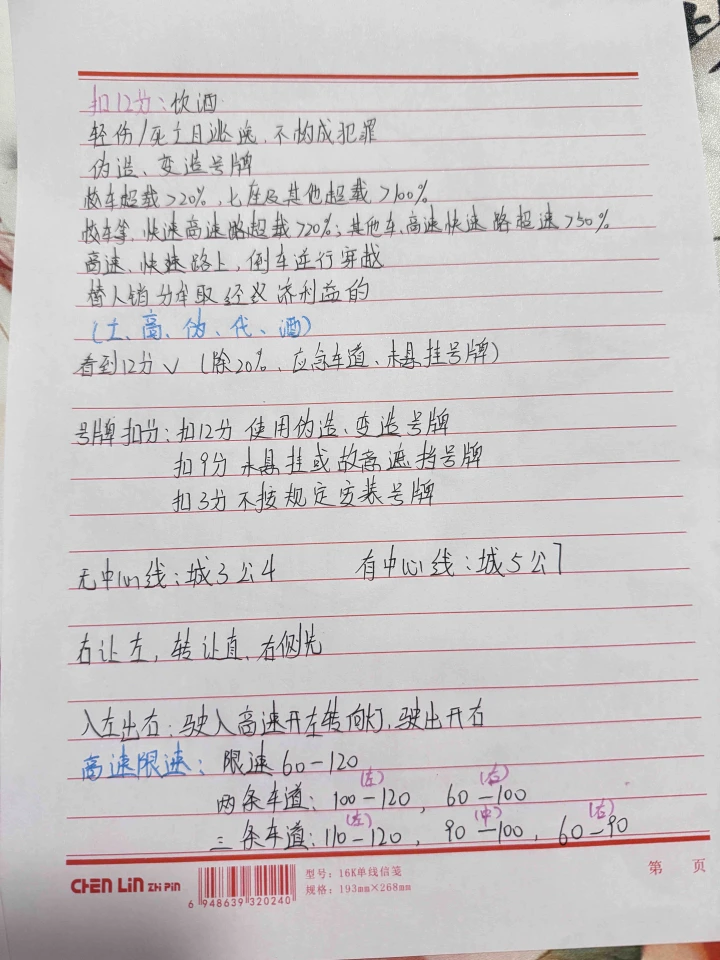 扣12分：饮酒
轻伤/死亡且逃逸，不构成犯罪
伪造、变造号牌
校车超载>20%，七座及其他超载>100%
校车等，快速高速路超载>20%；其他车，高速快速路超速>50%
高速、快速路上，倒车逆行穿越
替人销分牟取经济利益的
（土、高、伪、代、酒）
看到12分√（除20%、应急车道、未悬挂号牌）
号牌扣分：扣12分 使用伪造、变造号牌
扣9分 未悬挂或故意遮挡号牌
扣3分 不按规定安装号牌
无中心线：城3公4 有中心线：城5公7
右让左，转让直，右侧先
入左出右：驶入高速开左转向灯，驶出开右
高速限速：限速60-120
(左) (右)
两条车道：100-120，60-100
(左) (中) (右)
三条车道：110-120，90-100，60-90
CHEN LIN ZHI PIN
6 948639 320240
型号：16K单线信笺
规格：193mm×268mm
第 页